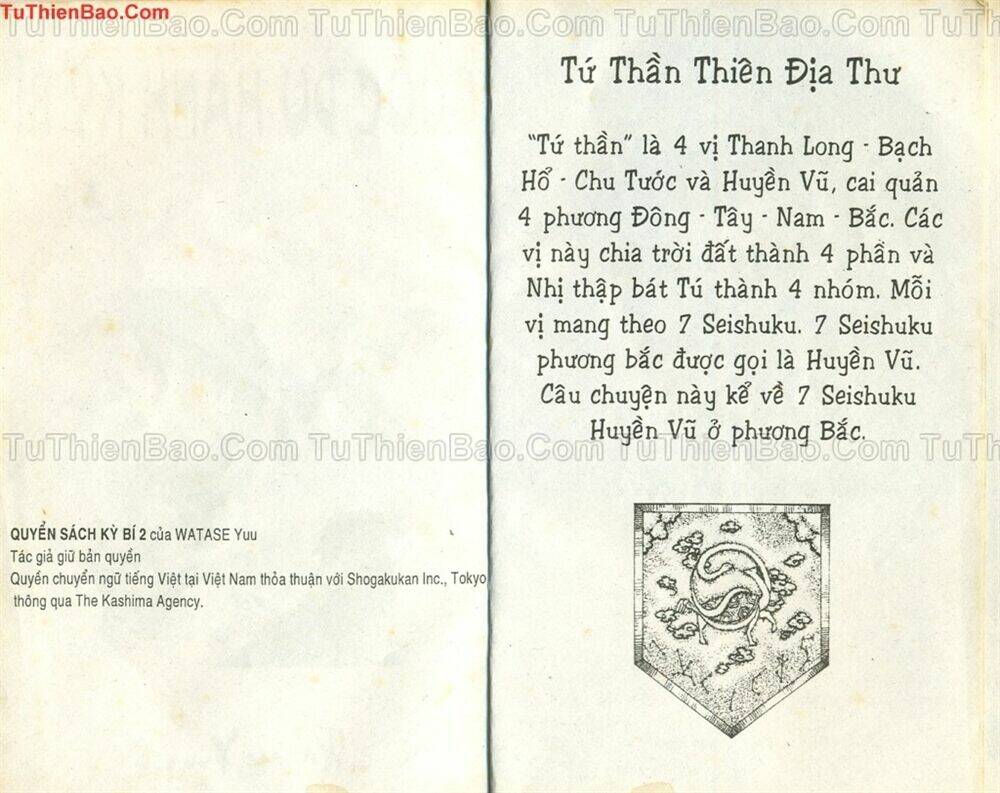 TuThienBao.Com
TuThienBao.Com TuThienBao.Com TuThienBao.Com TuThienBao.Com
QUYỂN SÁCH KỲ BÍ 2 của WATASE Yuu
Tác giả giữ bản quyền
Quyền chuyển ngữ tiếng Việt tại Việt Nam thỏa thuận với Shogakukan Inc., Tokyo
thông qua The Kashima Agency.
Tứ Thần Thiên Địa Thư
"Tứ thần" là 4 vị Thanh Long - Bạch
Hổ - Chu Tước và Huyền Vũ, cai quản
4 phương Đông - Tây - Nam - Bắc. Các
vị này chia trời đất thành 4 phần và
Nhị thập bát Tú thành 4 nhóm. Mỗi
vị mang theo 7 Seishuku. 7 Seishuku
phương bắc được gọi là Huyền Vũ.
Câu chuyện này kể về 7 Seishuku
Huyền Vũ ở phương Bắc.
TuThienBao.Com TuThienBao.Com TuThienBao.Com TuThienBao.Com